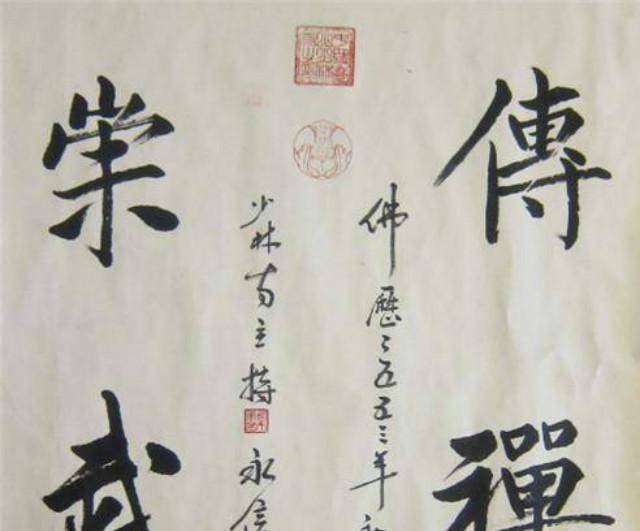 傳禪
佛歷二五五三年
少林寺主持永信
崇武